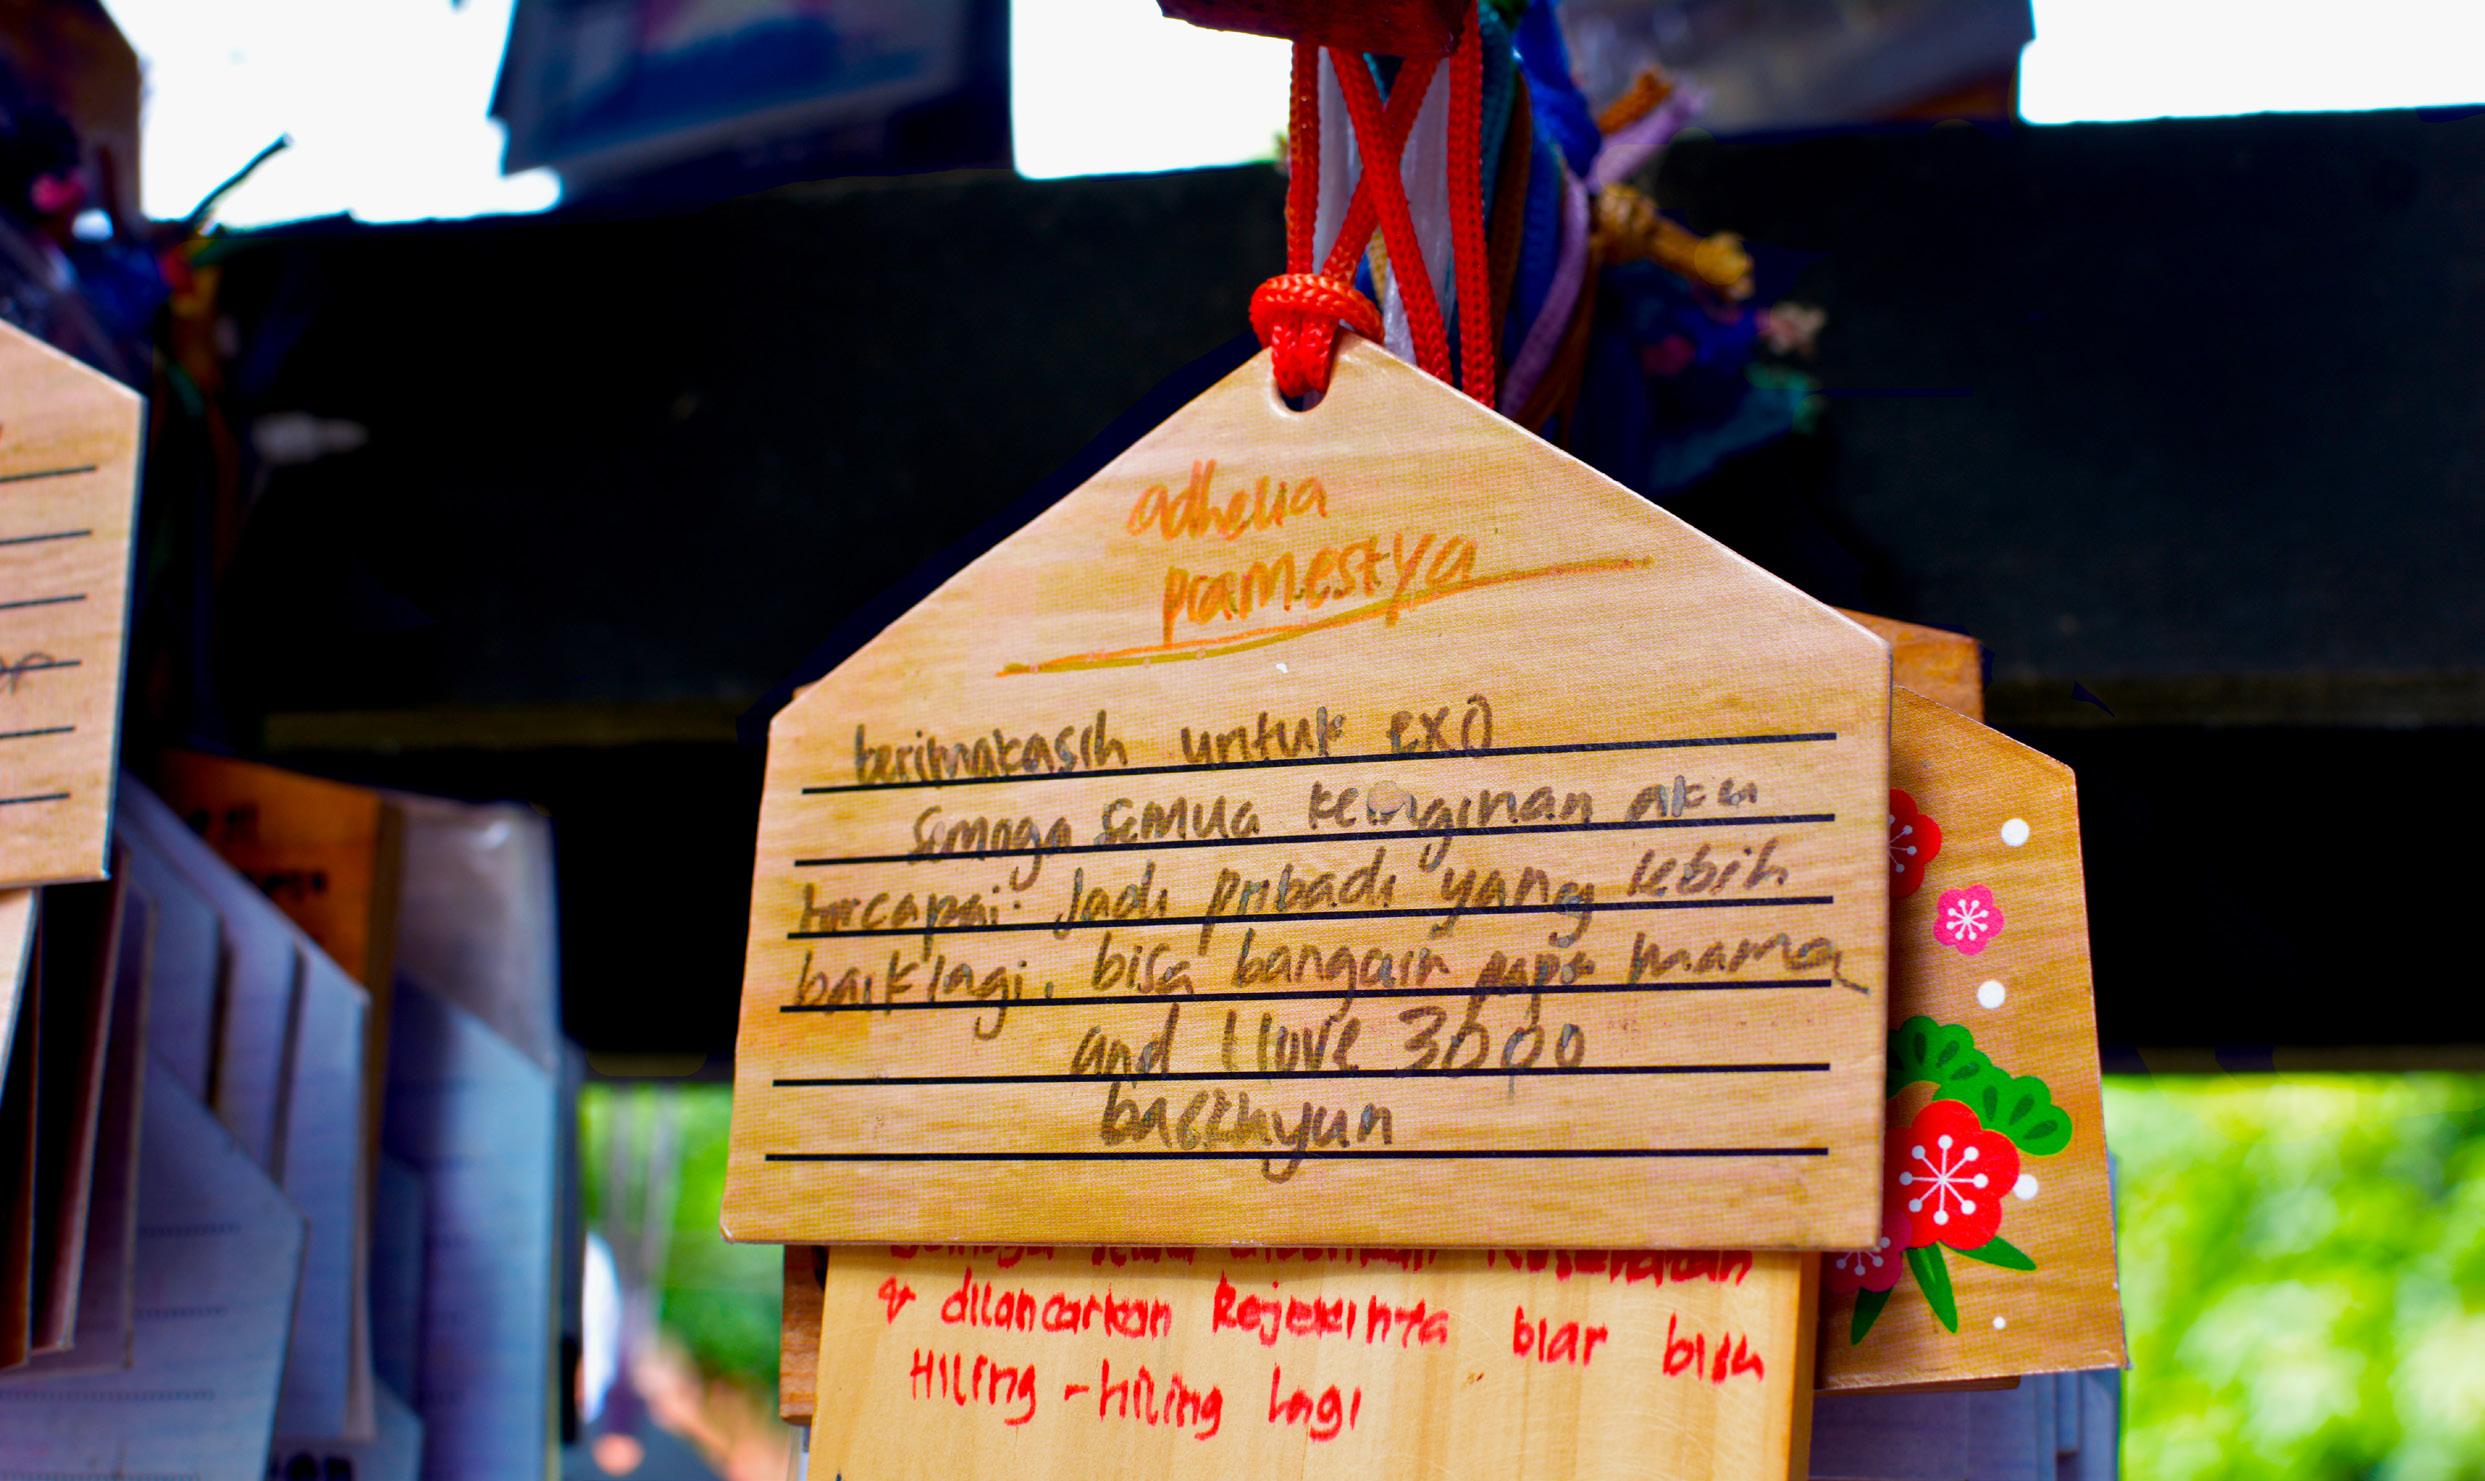 adhelia
pramestya
terimakasih untuk exo
semoga semua keinginan aku
tercapai. Jadi pribadi yang lebih
baik lagi, bisa bangain papa mama
and I love 3000
baekhyun
Semoga kesehatan
& dilancarkan Rejekinya biar bisa
Hiling-hiling lagi